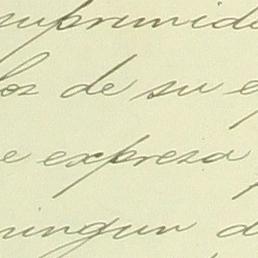 suprimido
de su
e expresa
ningun d